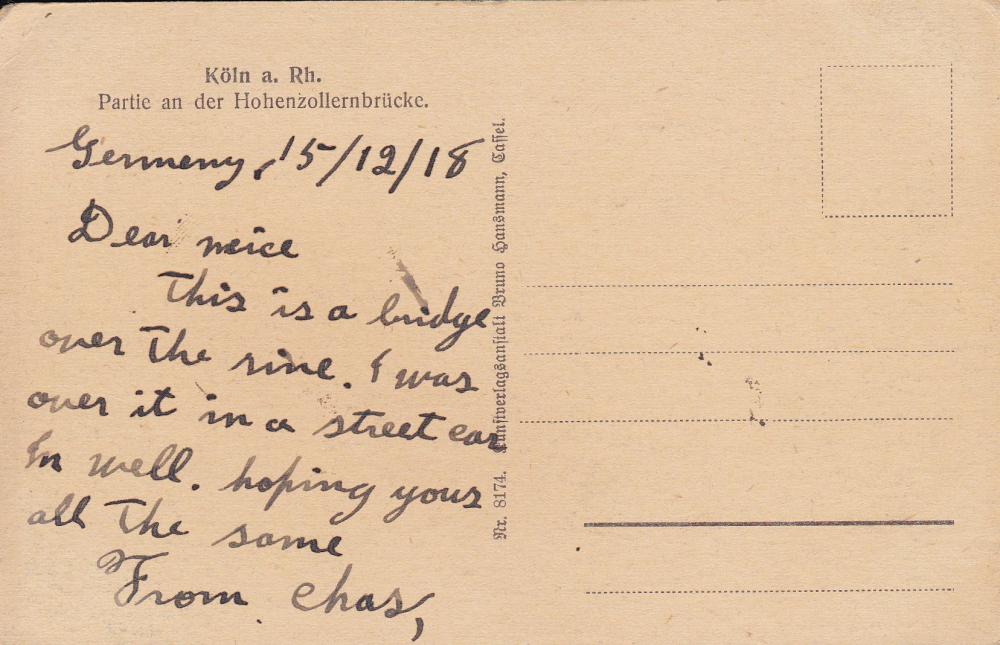 Köln a. Rh.
Partie an der Hohenzollernbrücke.
Germeny, 15/12/18
Dear neice
This is a bridge
over the rine. I was
over it in a street car
Im well. hoping yous
all the same
From Chas,
Nr. 8174. Kunstverlagsanstalt Bruno Hansmann, Cassel.